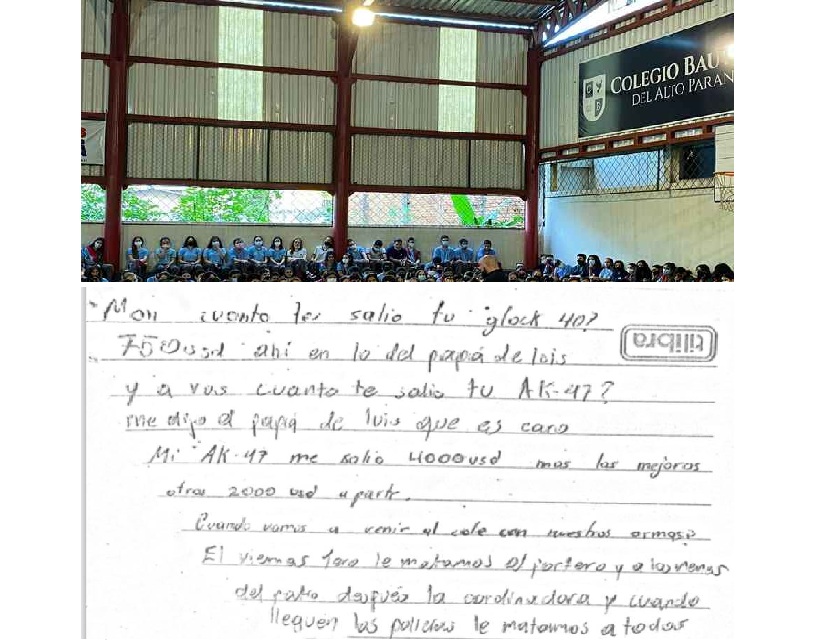 COLEGIO BAU
DEL ALTO PARAN
Mon cuanto te salio tu glock 40?
tilibra
750usd ahi en lo del papá de luis
y a vos cuanto te salio tu AK-47?
me dijo el papá de luis que es caro
Mi AK-47 me salio 4000usd mas las mejoras
otros 2000 usd aparte.
Cuando vamos a venir al cole con nuestras armas?
El viernes le matamos al portero y a los nenas
del patio después la cordinadora y cuando
lleguen las policias le matamos a todos